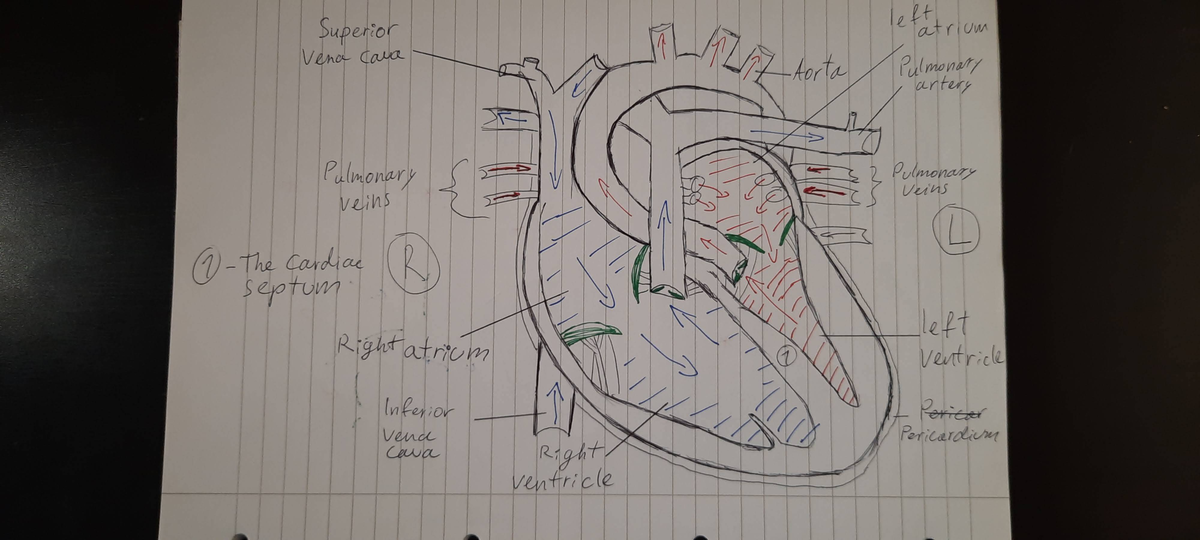 Superior
Vena Cava
left
atrium
Aorta
Pulmonary
artery
Pulmonary
veins
Pulmonary
veins
R
L
1 - The Cardiac
septum
Right atrium
1
left
ventricle
Inferior
vena
cava
Right
ventricle
Pericar
Pericardium